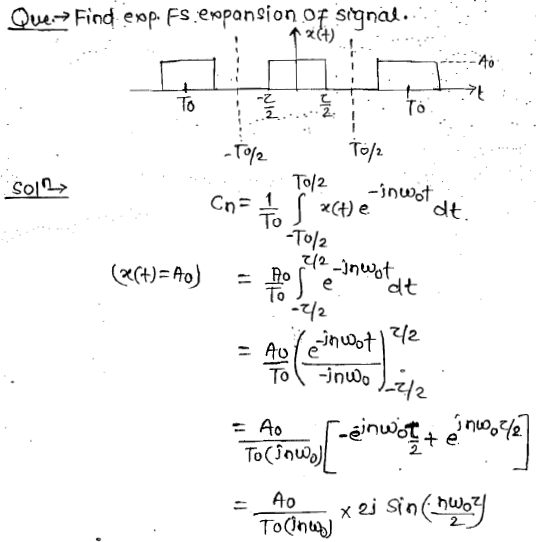 Que:→ Find exp. FS expansion of signal.
x(t)
A0
T0 -τ/2 τ/2 T0 t
-T0/2 T0/2
Soln→ Cn = 1/T0 ∫_{-T0/2}^{T0/2} x(t) e^{-jnω0t} dt.
(x(t)=A0) = A0/T0 ∫_{-τ/2}^{τ/2} e^{-jnω0t} dt
= A0/T0 (e^{-jnω0t}/-jnω0)_{-τ/2}^{τ/2}
= A0/T0(jnω0) [-e^{-jnω0τ/2} + e^{jnω0τ/2}]
= A0/T0(jnω0) × 2j sin(nω0τ/2)